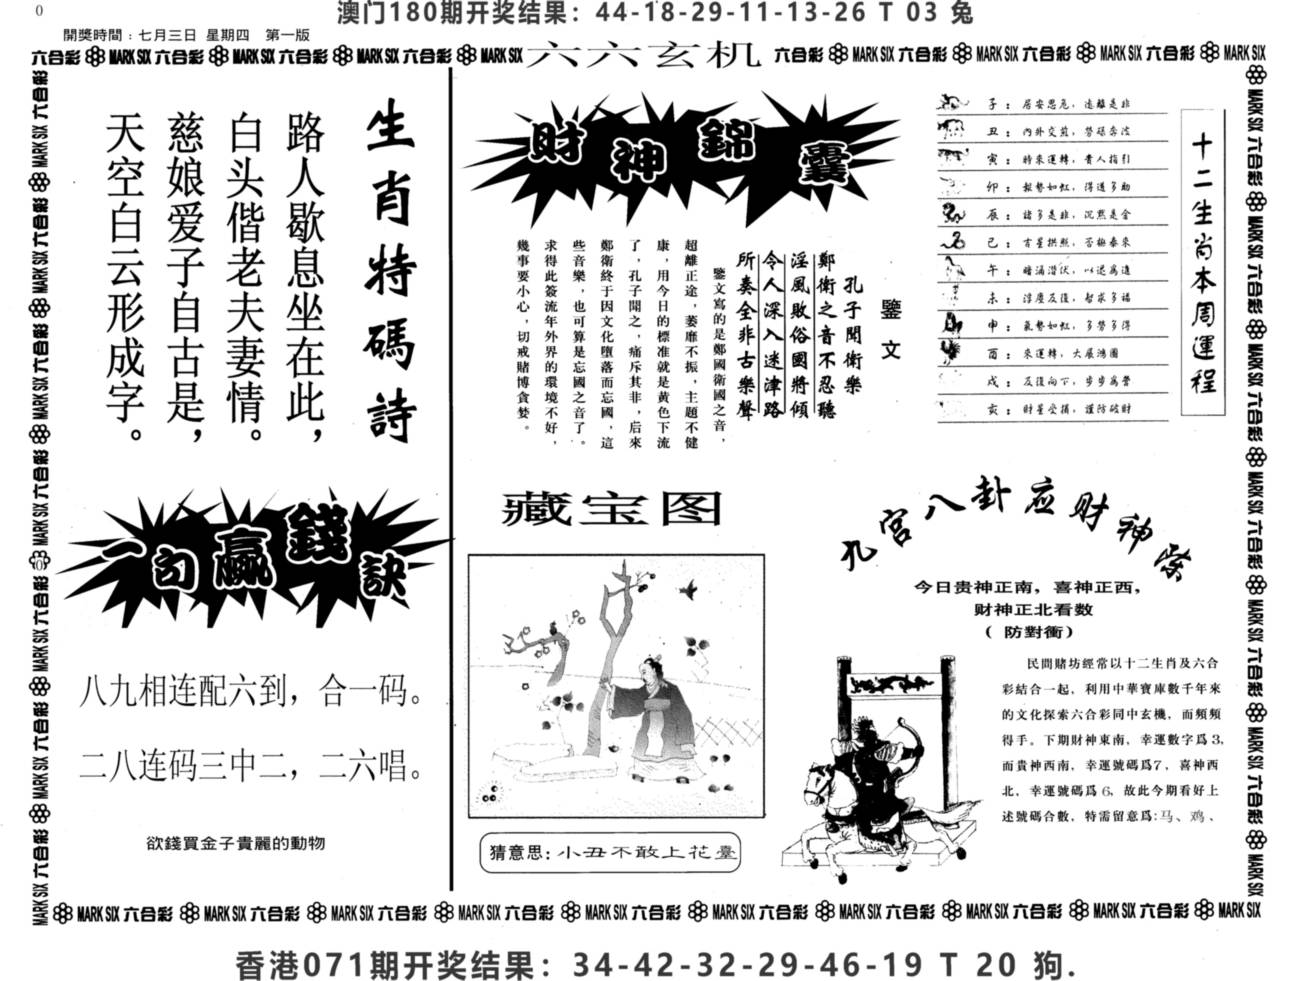 澳门180期开奖结果：44-18-29-11-13-26 T 03 兔
0
開獎時間：七月三日 星期四 第一版
六合彩 MARK SIX 六合彩 MARK SIX 六合彩 MARK SIX 六合彩 MARK SIX
六六玄机
六合彩 MARK SIX 六合彩 MARK SIX 六合彩 MARK SIX 六合彩 MARK SIX
生肖特碼詩
路人歇息坐在此，
白头偕老夫妻情。
慈娘爱子自古是，
天空白云形成字。
一句贏錢訣
八九相连配六到，合一码。
二八连码三中二，二六唱。
欲錢買金子貴麗的動物
財神錦囊
鑒文
孔子聞衛樂
鄭衛之音不忍聽
淫風敗俗國將傾
令人深入迷津路
所奏全非古樂聲
鑒文寫的是鄭國衛國之音，
超離正途，萎靡不振，主題不健
康，用今日的標准就是黃色下流
了，孔子聞之，痛斥其非，后來
鄭衛終于因文化墮落而忘國，這
些音樂，也可算是忘國之音了。
求得此簽流年外界的環境不好，
幾事要小心，切戒賭博貪婪。
十二生肖本周運程
子：居安思危，遠離是非
丑：內外交煎，勞碌奔波
寅：時來運轉，貴人指引
卯：報勢如虹，得道多助
辰：諸多是非，沉默是金
巳：吉星拱照，否極泰來
午：暗涌潜伏，以退爲進
未：浮塵反復，智求多福
申：氣勢如虹，多勞多得
酉：來運轉，大展鴻圖
戌：反復向下，步步爲營
亥：財星受損，謹防破財
藏宝图
猜意思：小丑不敢上花臺
九宫八卦应财神篨
今日贵神正南，喜神正西，
财神正北看数
（防對衝）
民間賭坊經常以十二生肖及六合
彩結合一起，利用中華寶庫數千年來
的文化探索六合彩同中玄機，而頻頻
得手。下期財神東南，幸運數字爲3，
而貴神西南，幸運號碼爲7，喜神西
北，幸運號碼爲6，故此今期看好上
述號碼合數，特需留意爲:马、鸡、
MARK SIX 六合彩 MARK SIX 六合彩 MARK SIX 六合彩 MARK SIX 六合彩 MARK SIX 六合彩 MARK SIX 六合彩 MARK SIX 六合彩 MARK SIX 六合彩 MARK SIX 六合彩 MARK SIX
香港071期开奖结果：34-42-32-29-46-19 T 20 狗.